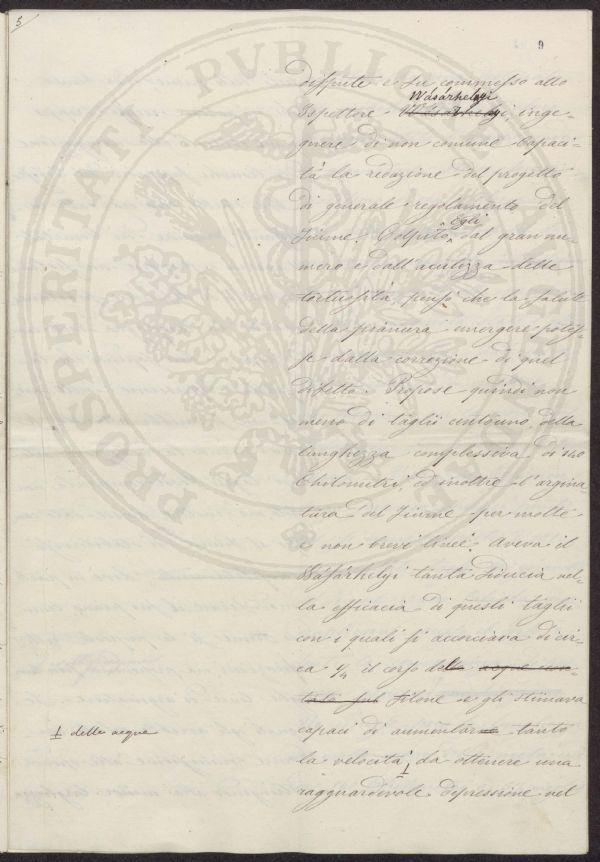 5
9
dispute e fu commesso allo
Wásárhelyi
Ispettore Wásárhelyi, inge-
gnere di non comune capaci-
tà la redazione del progetto
di generale regolamento del
Egli
fiume. Colpito dal gran nu-
mero e dall'acutezza delle
tortuosità, pensò che la salute
della pianura emergere potes-
se dalla correzione di quel
difetto. Propose quindi non
meno di taglii centouno, della
lunghezza complessiva di 140
Chilometri, ed inoltre l'argina-
tura del fiume per molte
e non brevi linee. Aveva il
Wásárhelyi tanta fiducia nel-
la efficacia di questi taglii
con i quali si accorciava di cir-
ca 1/4 il corso del filone e gli stimava
capaci di aumentar tanto
1 delle acque
la velocità 1 da ottenere una
ragguardevole depressione nel
PROSPERITATI PVBLICAE